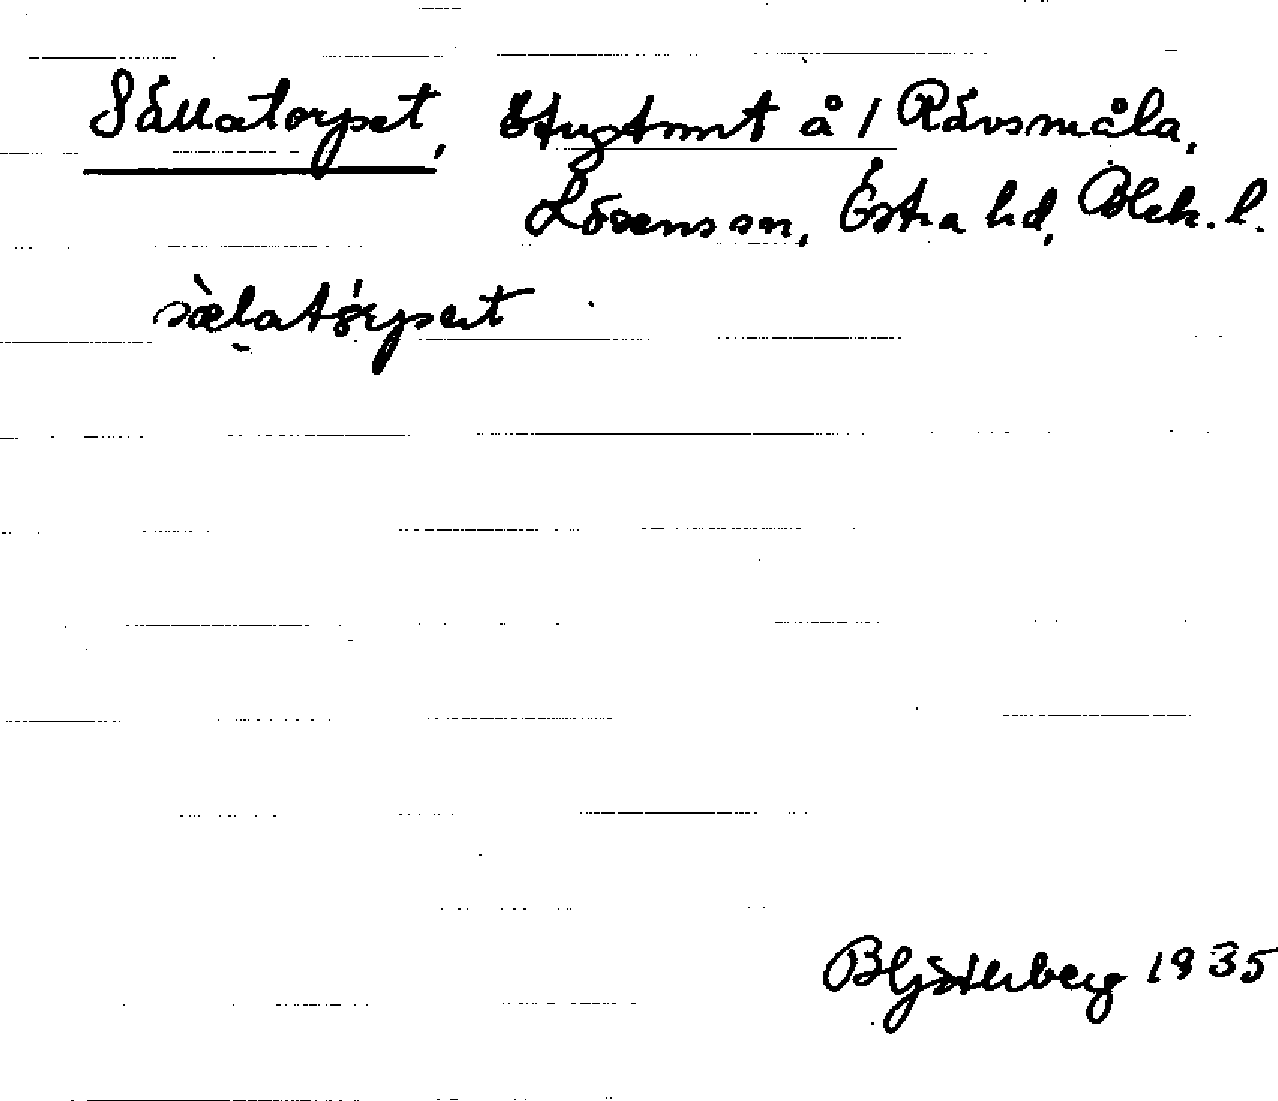 Sällatorpet, Stugtomt å 1 Rävsmåla,
Lösens sn, Östra hd, Blek. l.
sælatorpset
B Gjöterberg 1935